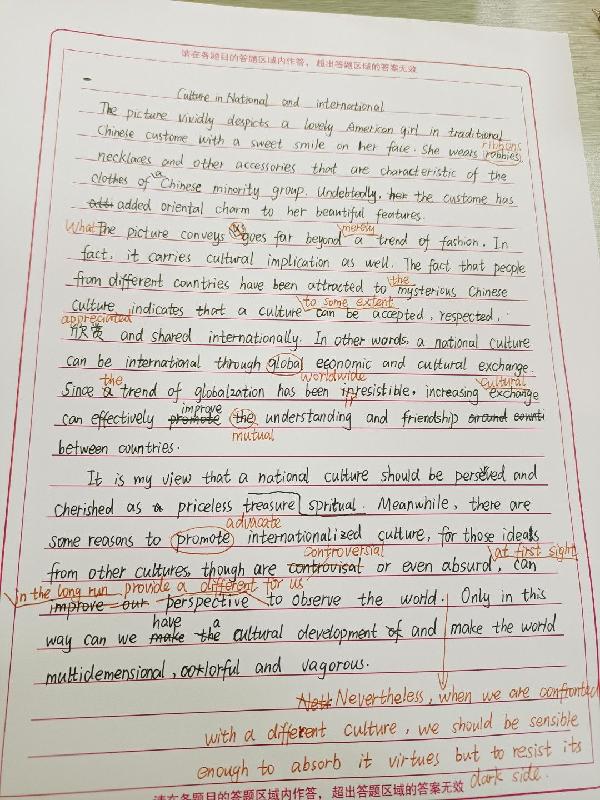 请在各题目的答题区域内作答，超出答题区域的答案无效
Culture in National and international
The picture vividly despicts a lovely American girl in traditional
Chinese custome with a sweet smile on her face. She wears robbies,
ribbons
necklaces and other accessories that are characteristic of the
clothes of a Chinese minority group. Undebtedly, her the custome has
added oriental charm to her beautiful features.
What The picture conveys goes far beyond merely a trend of fashion. In
fact, it carries cultural implication as well. The fact that people
from different countries have been attracted to the mysterious Chinese
culture indicates that a culture to some extent can be accepted, respected,
appreciated
欣赏 and shared internationally. In other words, a national culture
can be international through global economic and cultural exchange.
worldwide
Since the a trend of globalzation has been irresistible, increasing cultural exchange
can effectively promote improve the understanding and friendship around
mutual
between countries.
It is my view that a national culture should be perserved and
cherished as a priceless treasure spritual. Meanwhile, there are
advocate
some reasons to promote internationalized culture, for those ideals
controversial
from other cultures, though are controvisal or even absurd, at first sight can
in the long run provide a different for us
improve our perspective to observe the world. Only in this
way can we make the have a cultural development of and make the world
multidemensional, colorful and vagorous.
Nevertheless, when we are confronted
with a different culture, we should be sensible
enough to absorb it virtues but to resist its
dark side.
请在各题目的答题区域内作答，超出答题区域的答案无效